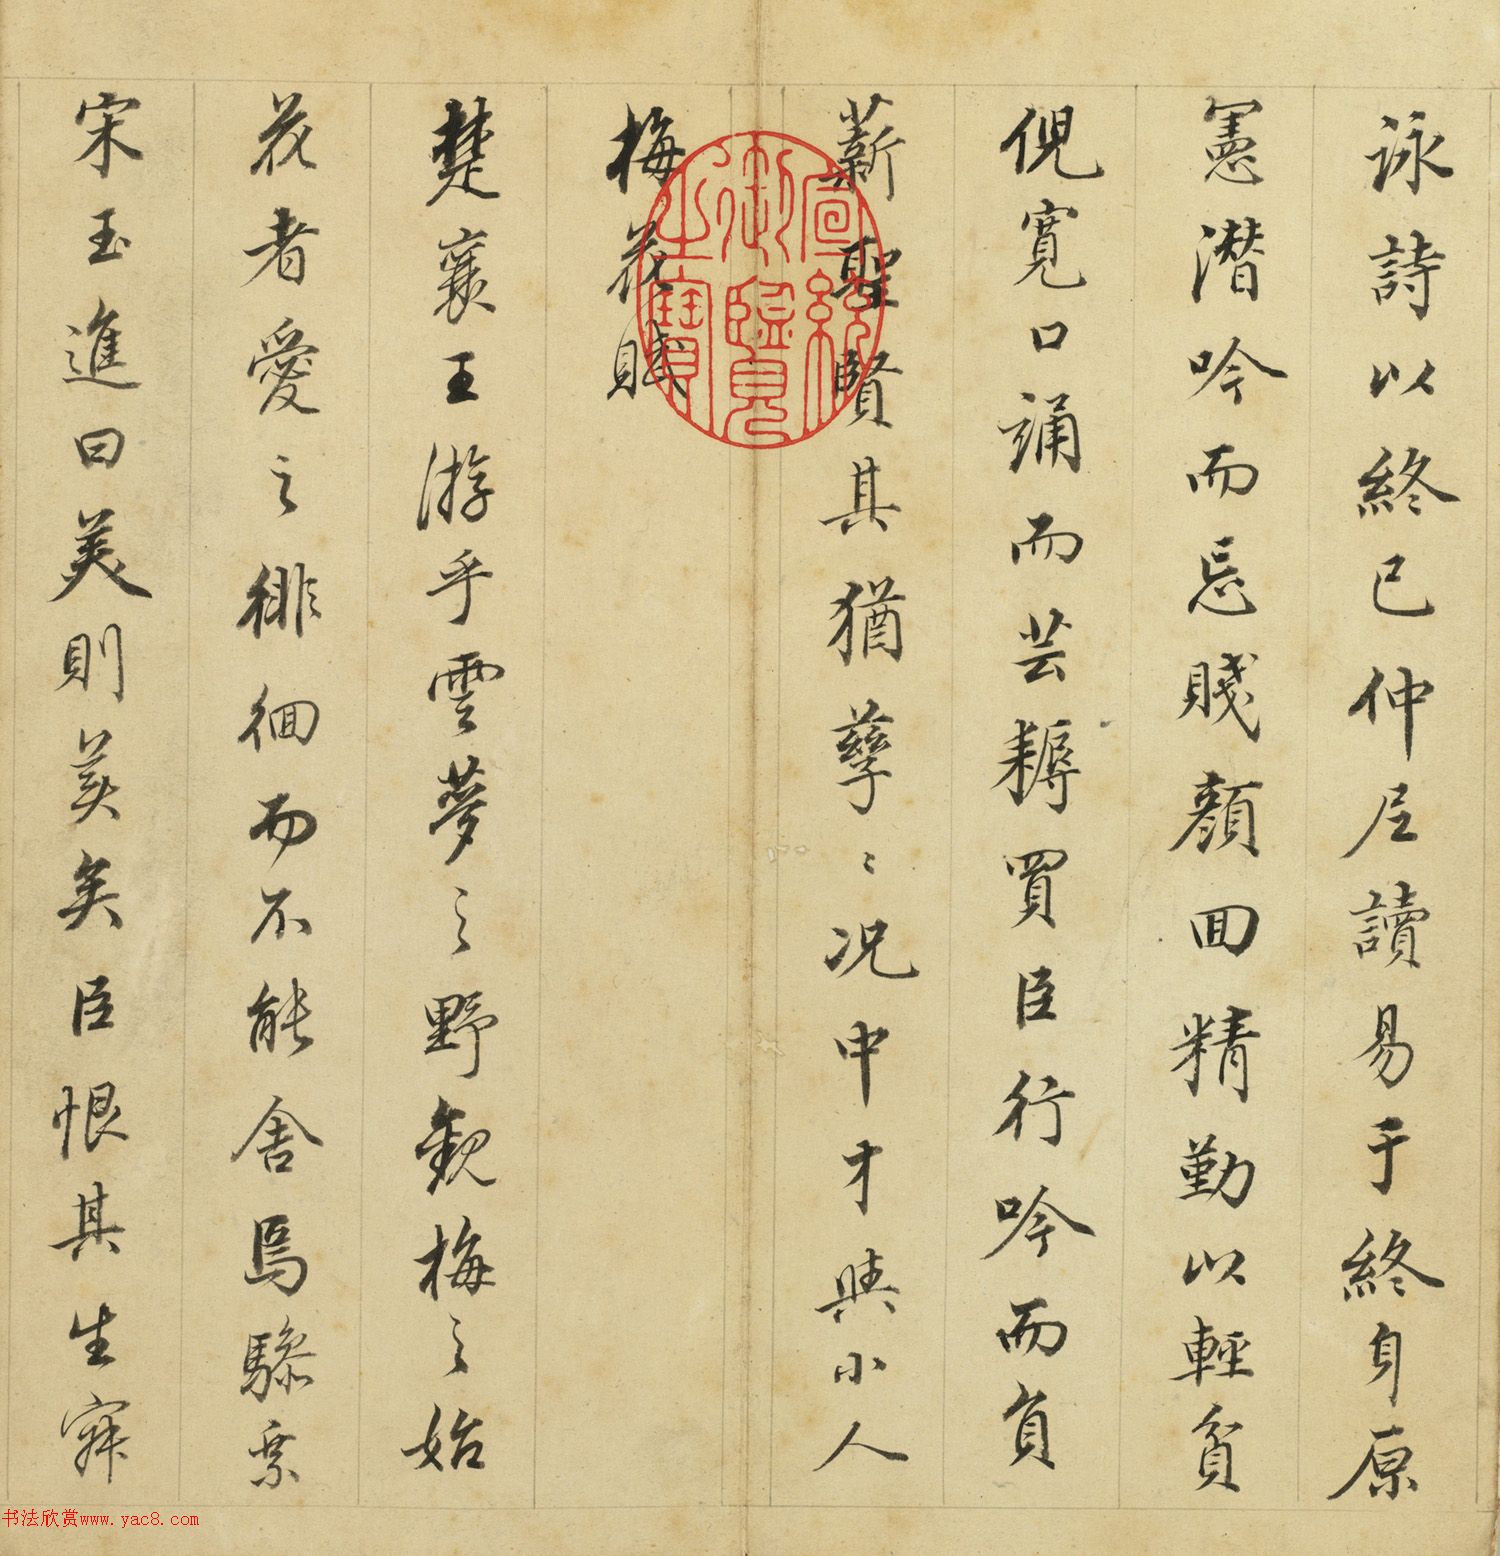 詠詩以終已仲尼讀易于終身原
憲潛吟而忘賤顏回精勤以輕貧
倪寬口誦而芸耨買臣行吟而負
薪聖賢其猶孳〻況中才與小人
梅花賦
楚襄王游乎雲夢之野觀梅之始
花者愛之徘徊而不能舍焉驂乗
宋玉進曰美則美矣臣恨其生寂
宣統御覽之寶
书法欣赏www.yac8.com